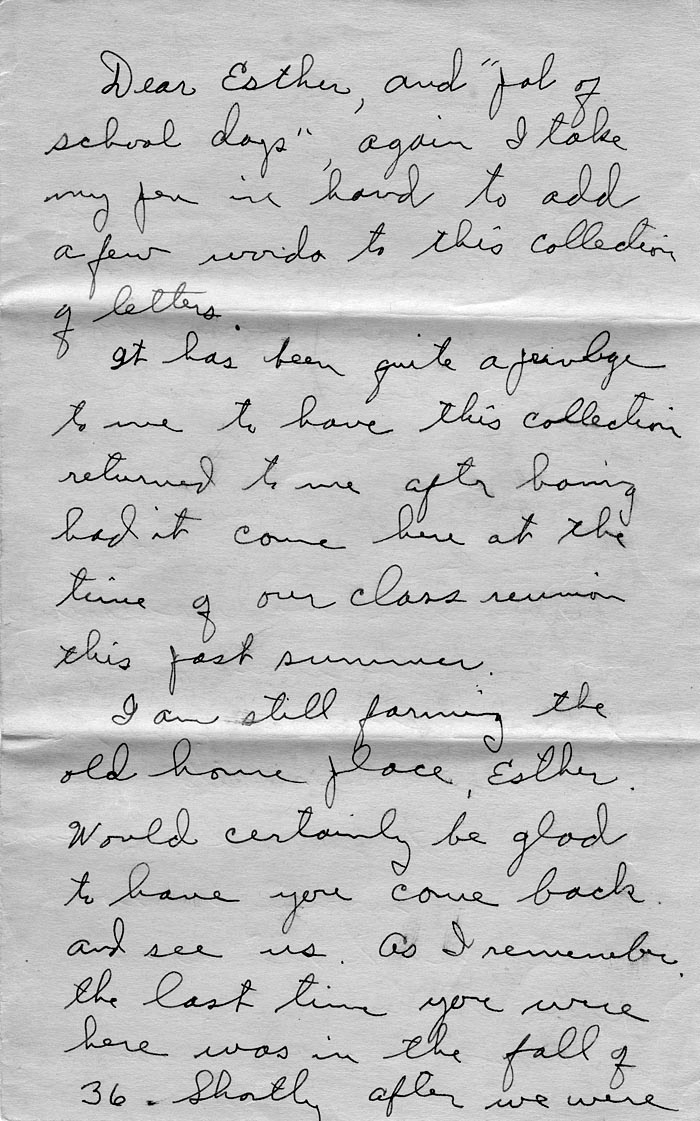 Dear Esther, and "pal of
school days", again I take
my pen in hand to add
a few words to this collection
of letters.
It has been quite a privlege
to me to have this collection
returned to me after having
had it come here at the
time of our class reunion
this past summer.
I am still farming the
old home place, Esther.
Would certainly be glad
to have you come back
and see us. As I remember
the last time you were
here was in the fall of
36. Shortly after we were